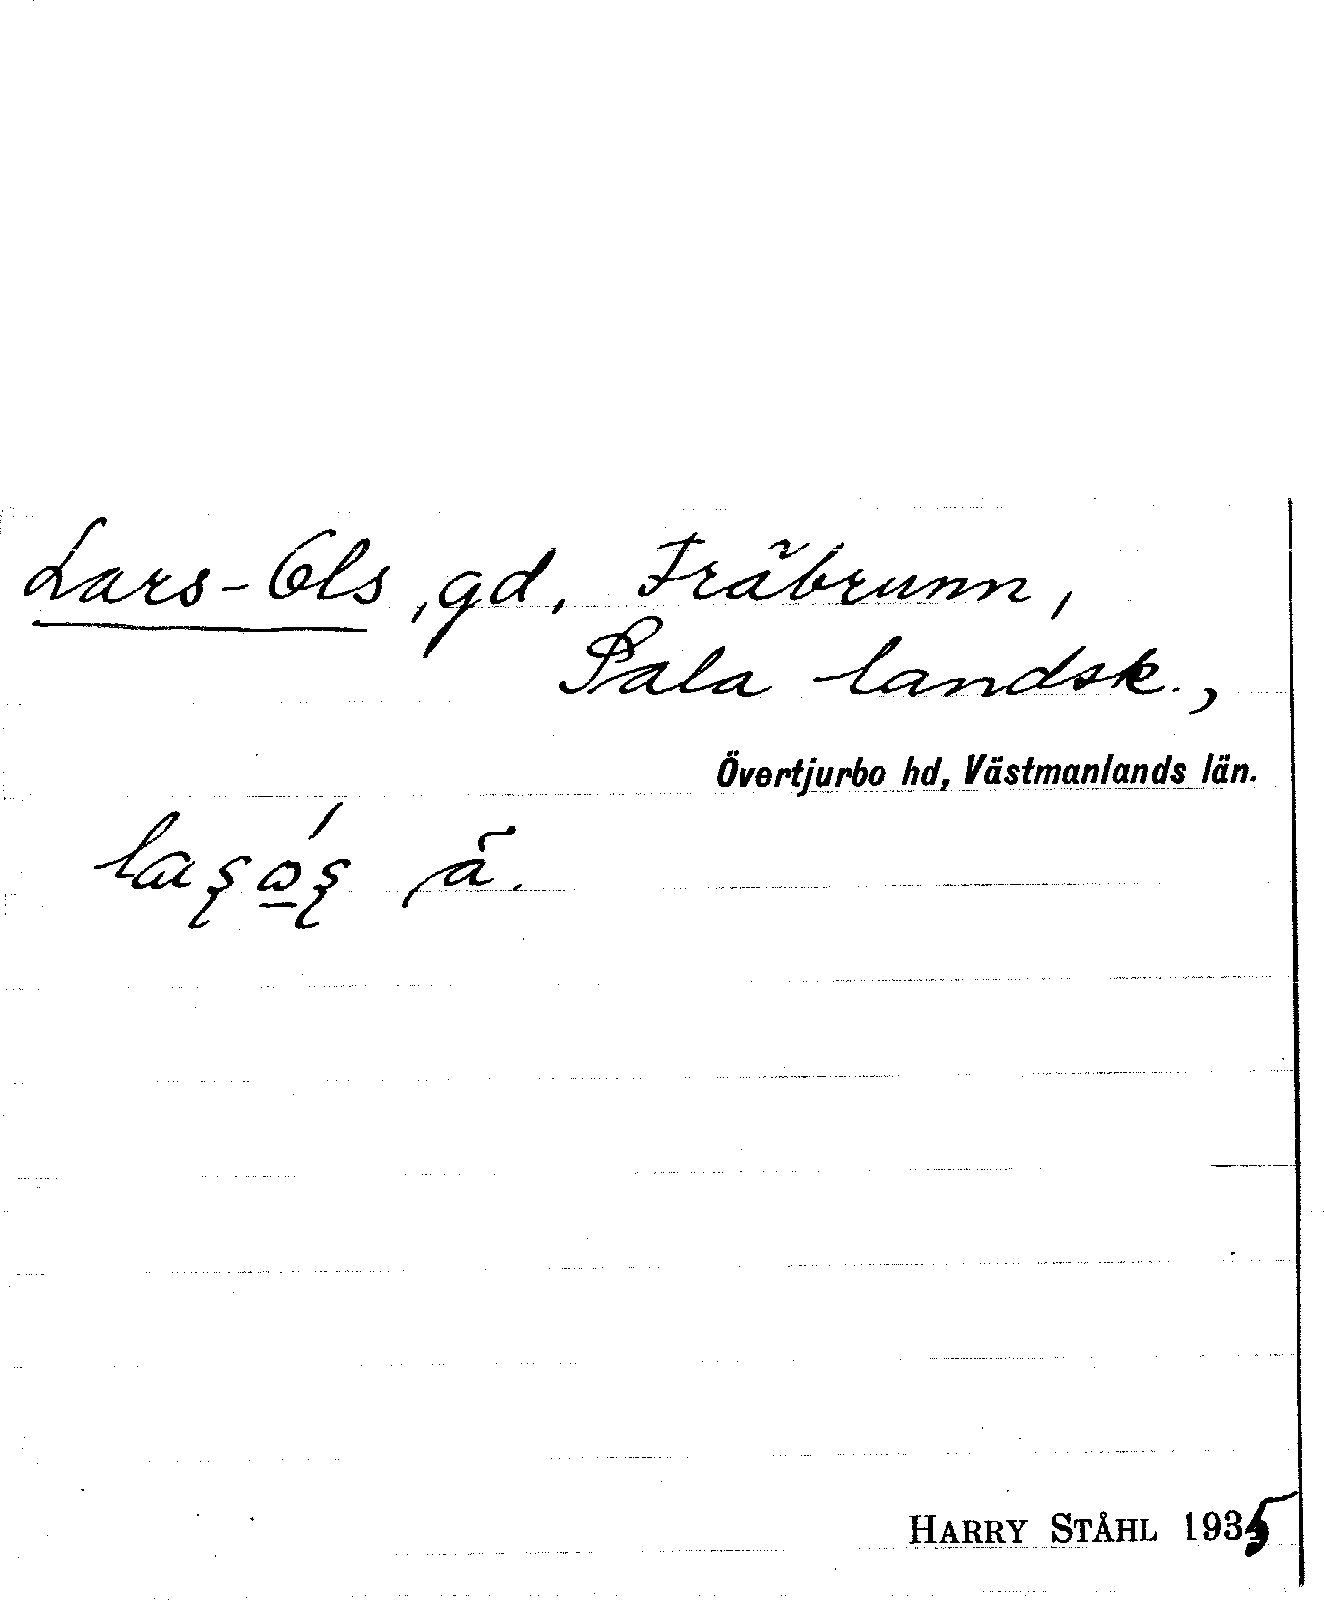 Lars-Ols, gd, Fräbrunn,
Sala landsk.,
Övertjurbo hd, Västmanlands län.
HARRY STÅHL 1935